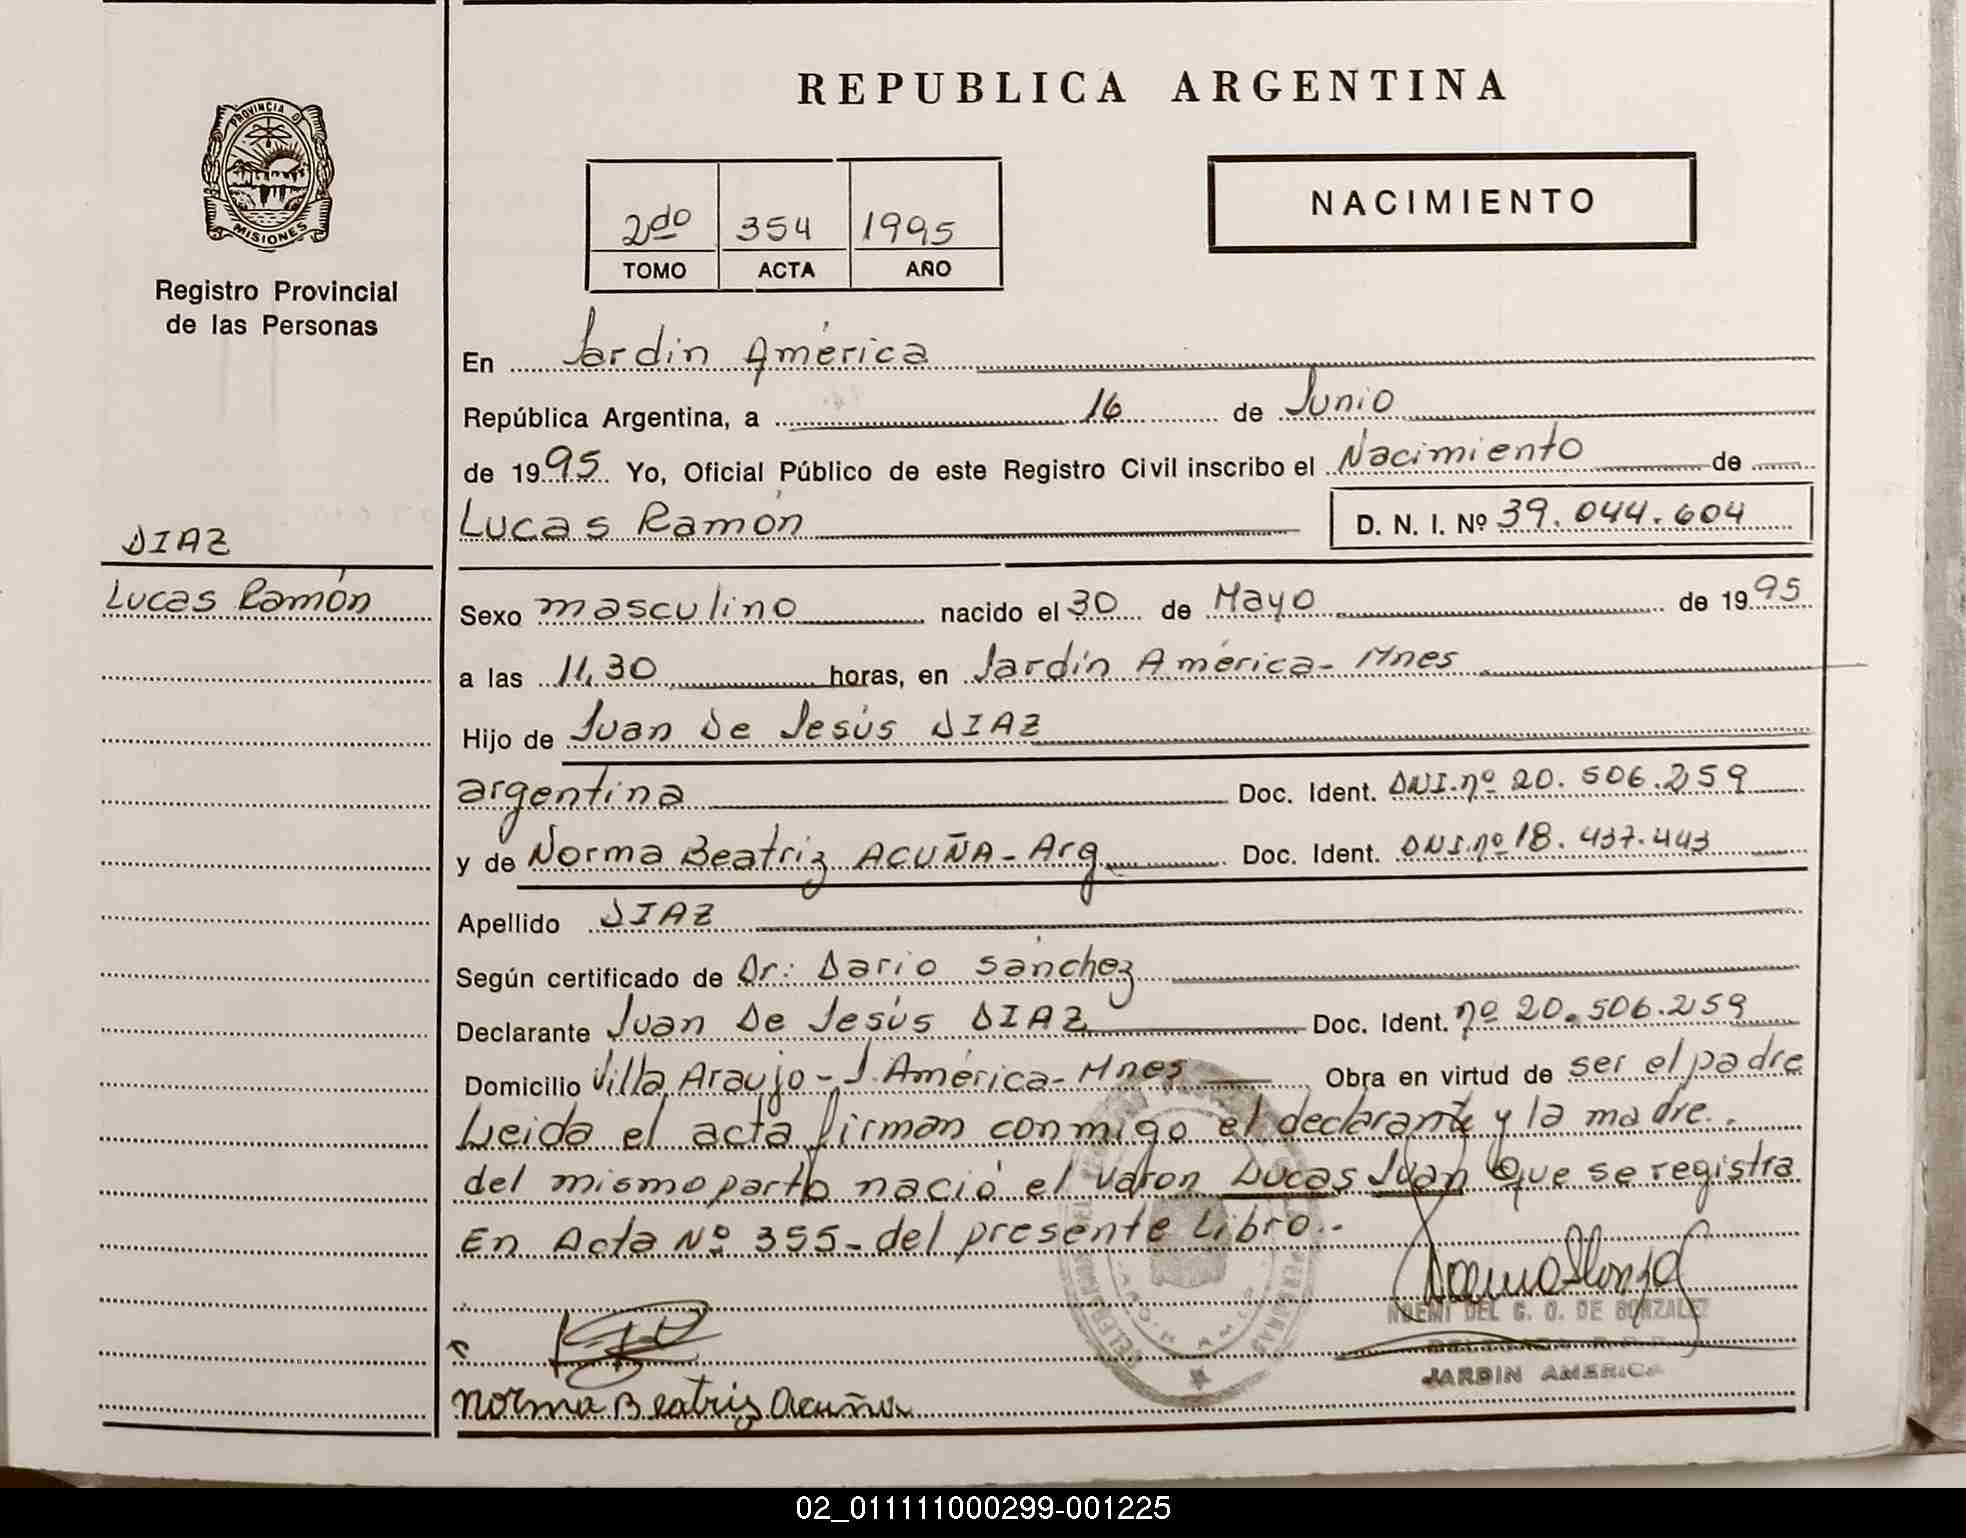 REPUBLICA ARGENTINA
PROVINCIA DE
MISIONES
Registro Provincial
de las Personas
2do 354 1995
TOMO ACTA AÑO
NACIMIENTO
En Jardín América
República Argentina, a 16 de Junio
de 1995 Yo, Oficial Público de este Registro Civil inscribo el Nacimiento de
Lucas Ramón D. N. I. Nº 39.044.604
DIAZ
Lucas Ramón
Sexo masculino nacido el 30 de Mayo de 1995
a las 11,30 horas, en Jardín América- Mnes
Hijo de Juan De Jesús DIAZ
argentina Doc. Ident. DNI.nº 20.506.259
y de Norma Beatriz ACUÑA- Arg. Doc. Ident. DNI.nº 18.437.443
Apellido DIAZ
Según certificado de Dr: Dario Sánchez
Declarante Juan De Jesús DIAZ Doc. Ident. nº 20.506.259
Domicilio Villa Araujo- J. América- Mnes Obra en virtud de ser el padre
Leida el acta firman conmigo el declarante y la madre.
del mismo parto nació el varon Lucas Juan que se registra
En Acta Nº 355- del presente Libro.-
NOEMI DEL C. O. DE GONZALEZ
JARDIN AMERICA
Norma Beatris Acuña
02_011111000299-001225